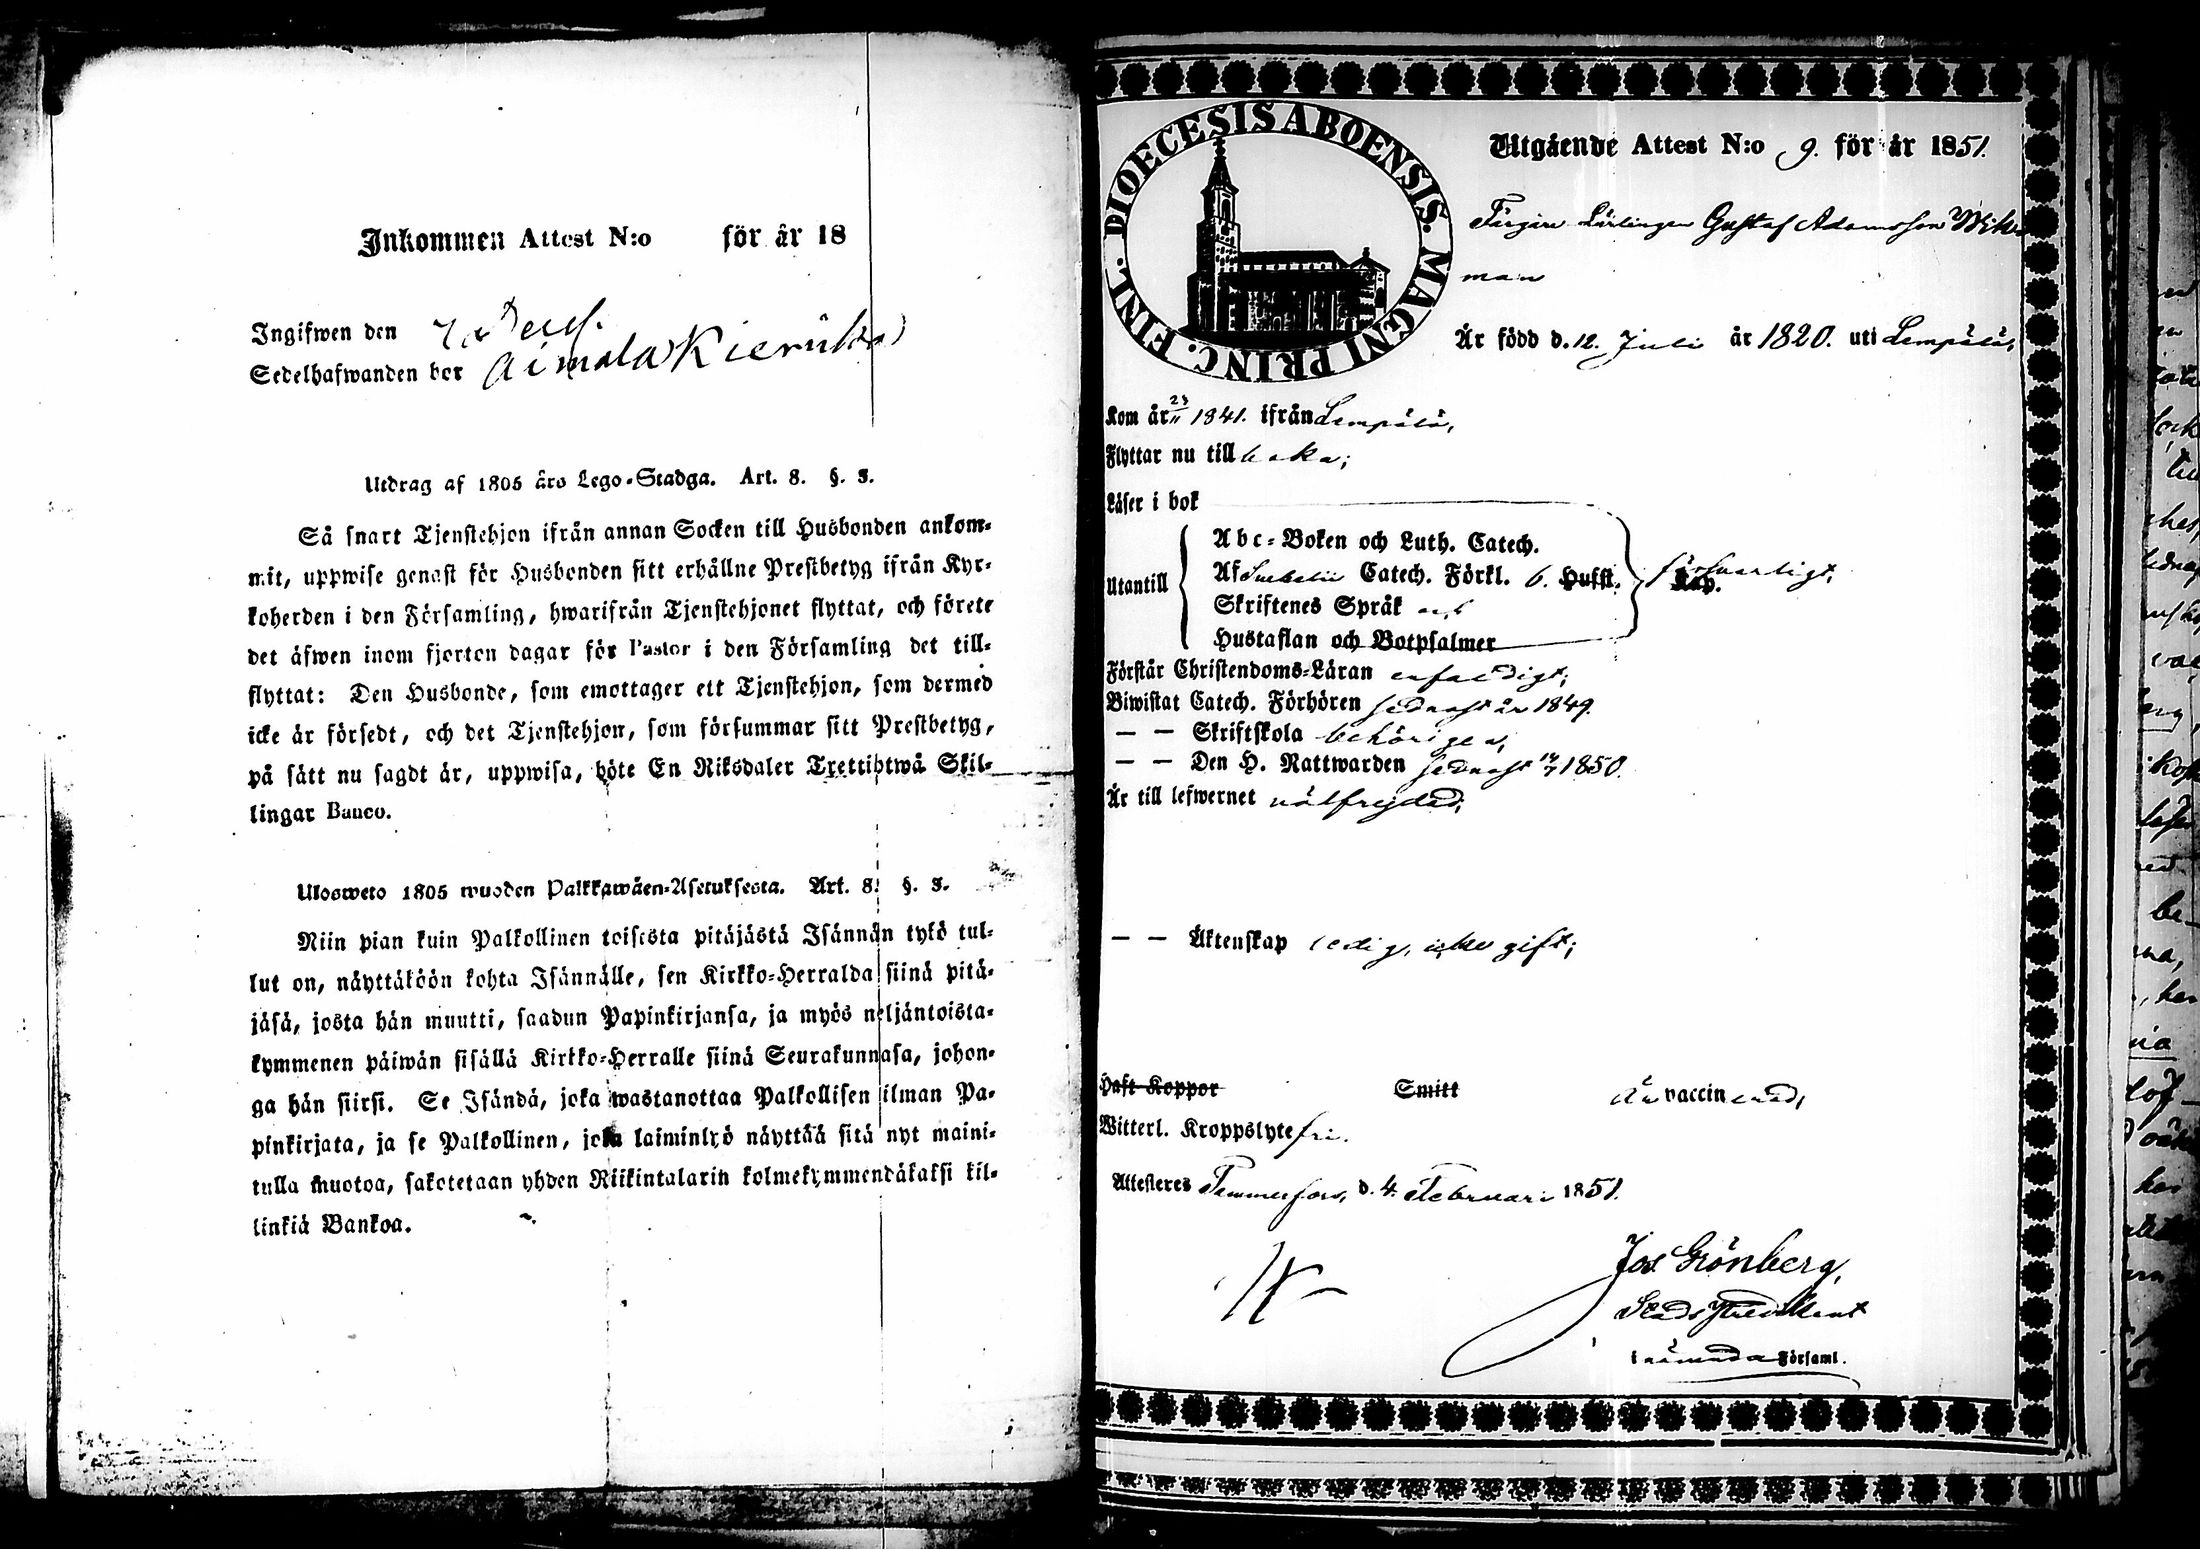 Inkommen Attest N:o för år 18
Ingifwen den 7 Dec.
Sedelhafwanden bor
Utdrag af 1805 års Lego-Stadga. Art. 8. §. 3.
Så snart Tjenstehjon ifrån annan Socken till Husbonden ankom-
mit, uppwise genast för Husbonden sitt erhållne Prestbetyg ifrån Kyr-
koherden i den Församling, hwarifrån Tjenstehjonet flyttat, och förete
det äfwen inom fjorton dagar för Pastor i den Församling det till-
flyttat: Den Husbonde, som emottager ett Tjenstehjon, som dermed
icke är försedt, och det Tjenstehjon, som försummar sitt Prestbetyg,
på sätt nu sagdt är, uppwisa, böte En Riksdaler Trettiotwå Skil-
lingar Banco.
Ulosweto 1805 wuoden Palkkawäen-Asetuksesta. Art. 8. §. 3.
Niin pian kuin Palkollinen toisesta pitäjästä Isännän tykö tul-
lut on, näyttäköön kohta Isännälle, sen Kirkko-Herralda siinä pitä-
jäsä, josta hän muutti, saadun Papinkirjansa, ja myös neljäntoista-
kymmenen päiwän sisällä Kirkko-Herralle siinä Seurakunnasa, johon-
ga hän siirsi. Se Isändä, joka wastanottaa Palkollisen ilman Pa-
pinkirjata, ja se Palkollinen, joka laiminlyö näyttää sitä nyt maini-
tulla muotoa, sakotetaan yhden Riikintalarin kolmekymmendäkaksi kil-
linkiä Bankoa.
DIOECESIS ABOENSIS. MAGNI PRINC. FINL.
Utgående Attest N:o 9. för år 1851.
Färgare Lärlingen Gustaf Adamsson Wik-
man
Är född d. 12. Juli år 1820. uti Lempälä,
Kom år 23/11 1841. ifrån Lempälä,
Flyttar nu tillbaka;
Läser i bok
Utantill
Abc-Boken och Luth. Catech.
Af Svebelii Catech. Förkl. 6. Hufst. Kap. försvarligt,
Skriftenes Språk och
Hustaflan och Botpsalmer
Förstår Christendoms-Läran enfaldigt;
Biwistat Catech. Förhören sednast år 1849.
— — Skriftskola behörigen,
— — Den H. Nattwarden sednast 14/7 1850.
Är till lefwernet välfrejdad;
— — Äktenskap ledig, icke gift;
Haft Koppor Smitt Är vaccinerad,
Witterl. Kroppslyte fri.
Attesteres Tammerfors, d. 4. Februari 1851.
Jos. Grönberg,
Stads Predikant
i nämnda Församl.